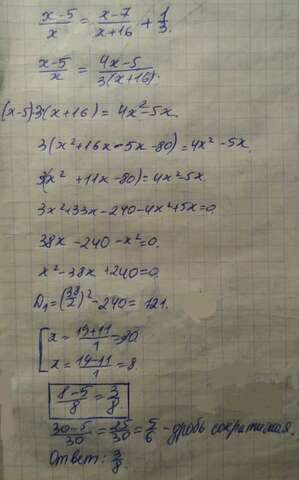 (x-5)/x = (x-7)/(x+16) + 1/3.
(x-5)/x = (4x-5)/(3(x+16)).
(x-5)·3(x+16) = 4x²-5x.
3(x²+16x-5x-80) = 4x²-5x.
3(x²+11x-80) = 4x²-5x.
3x²+33x-240-4x²+5x=0.
38x-240-x²=0.
x²-38x+240=0.
D₁=(38/2)²-240=121.
x = (19+11)/1 = 30
x = (19-11)/1 = 8
(8-5)/8 = 3/8
(30-5)/30 = 25/30 = 5/6 - дробь сократимая.
Ответ: 3/8.